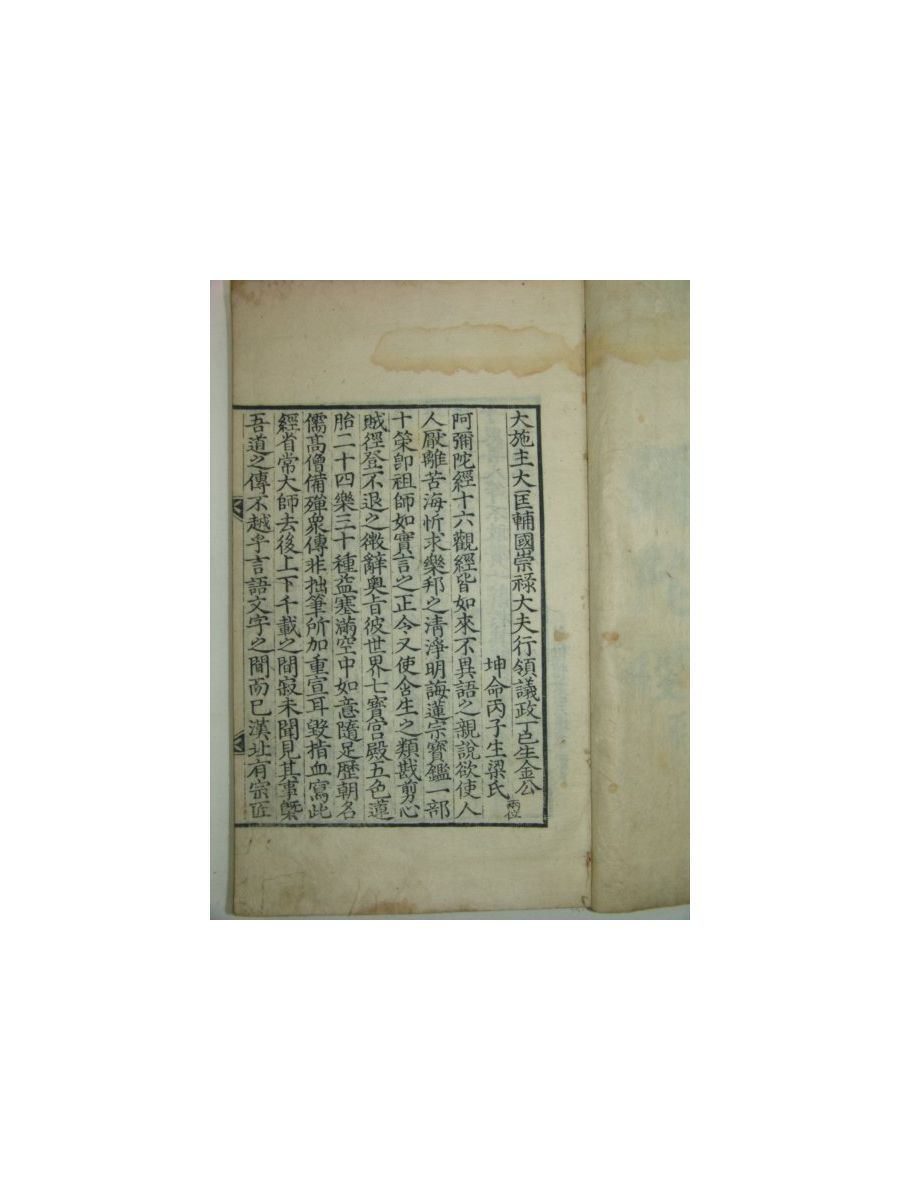 大施主大匡輔國崇祿大夫行領議政丁巳生金公
坤命丙子生梁氏 兩位
阿彌陀經十六觀經皆如來不異語之親說欲使人
人厭離苦海忻求樂邦之清淨明誨蓮宗寶鑑一部
十策卽祖師如實言之正令又使含生之類戡剪心
賊徑登不退之微辭奧旨彼世界七寶宮殿五色蓮
胎二十四樂三十種益塞滿空中如意隨足歷朝名
儒高僧備殫衆傳非拙筆所加重宣耳毁指血寫此
經省常大師去後上下千載之間寂未聞見其事槩
吾道之傳不越乎言語文字之間而已漢址有宗匠